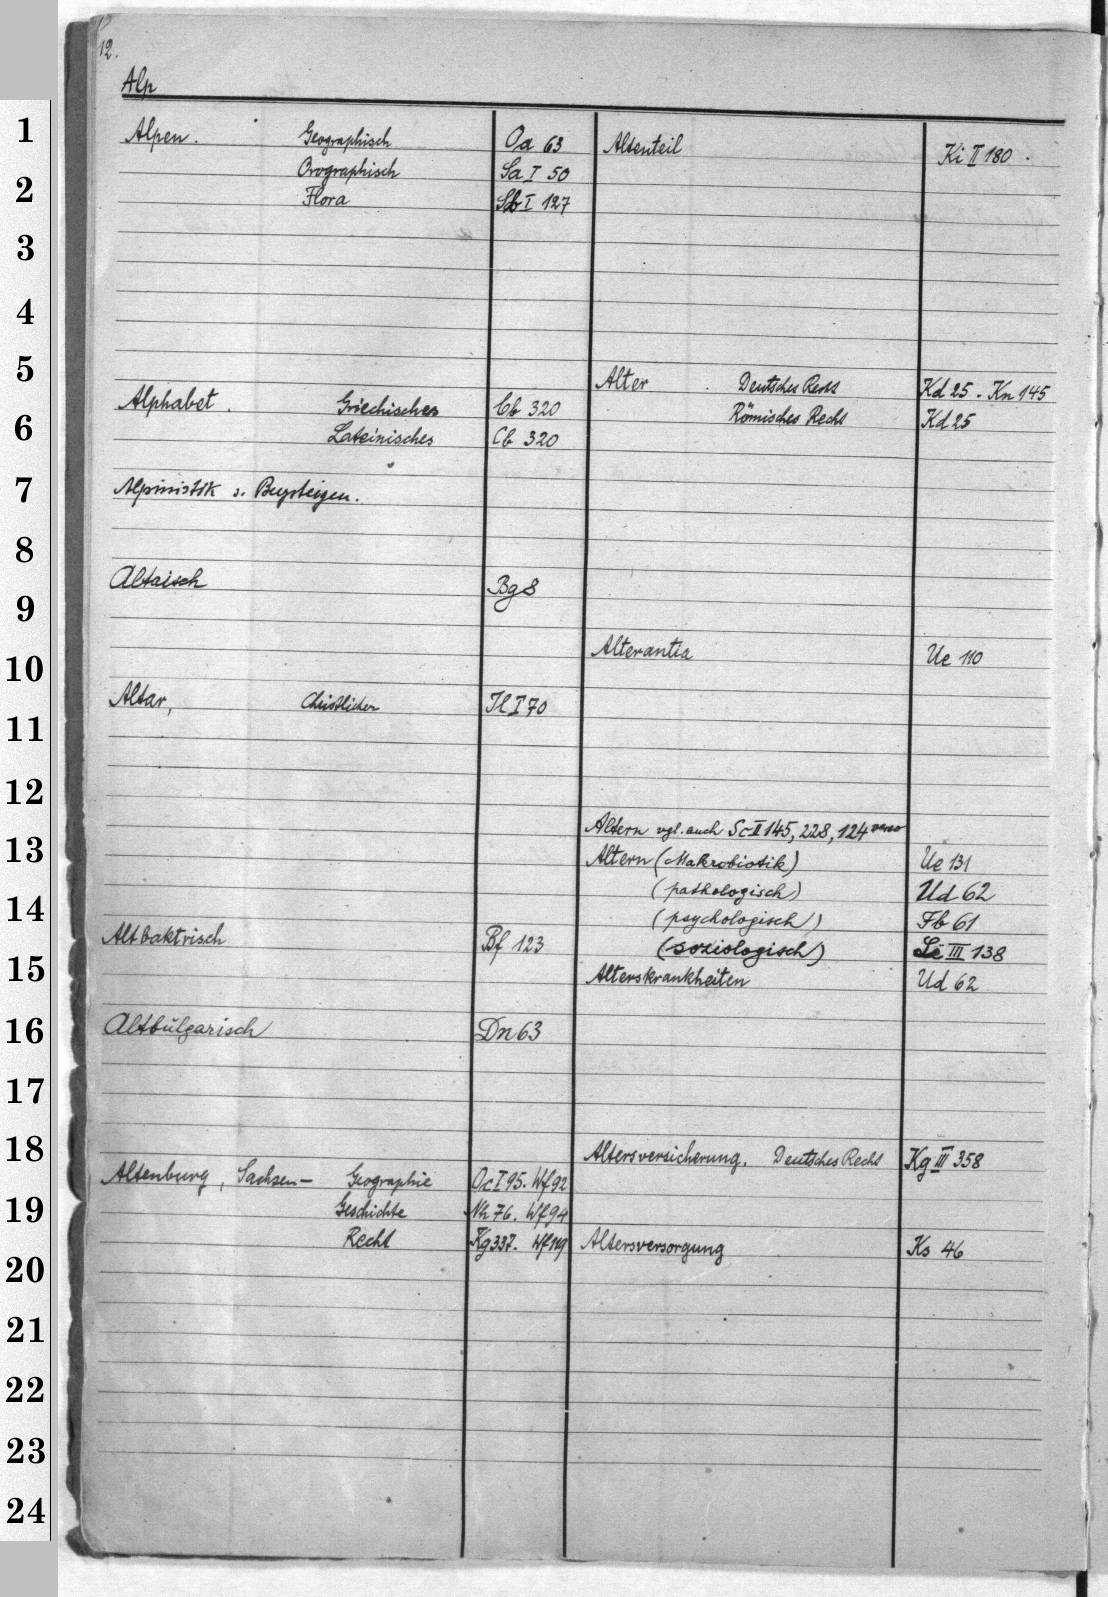 12.
Alp
Alpen. Geographisch Oa 63
Orographisch Sa I 50
Flora Sb I 127
Alphabet. Griechisches Cb 320
Lateinisches Cb 320
Alpinistik s. Bergsteigen.
Altaisch Bg 8
Altar, Christlicher Il I 70
Altbaktrisch Bf 123
Altbulgarisch Dn 63
Altenburg, Sachsen- Geographie Oc I 95. Wf 92
Geschichte Nh 76. Wf 94
Recht Kg 337. Wf 119
Altenteil Ki II 180.
Alter Deutsches Recht Kd 25. Kn 145
Römisches Recht Kd 25
Alterantia Ue 110
Altern vgl. auch Sc II 145, 228, 124 verso
Altern (Makrobiotik) Ue 131
(pathologisch) Ud 62
(psychologisch) Fb 61
(soziologisch) III 138
Alterskrankheiten Ud 62
Altersversicherung. Deutsches Recht Kg III 358
Altersversorgung Ks 46
1
2
3
4
5
6
7
8
9
10
11
12
13
14
15
16
17
18
19
20
21
22
23
24